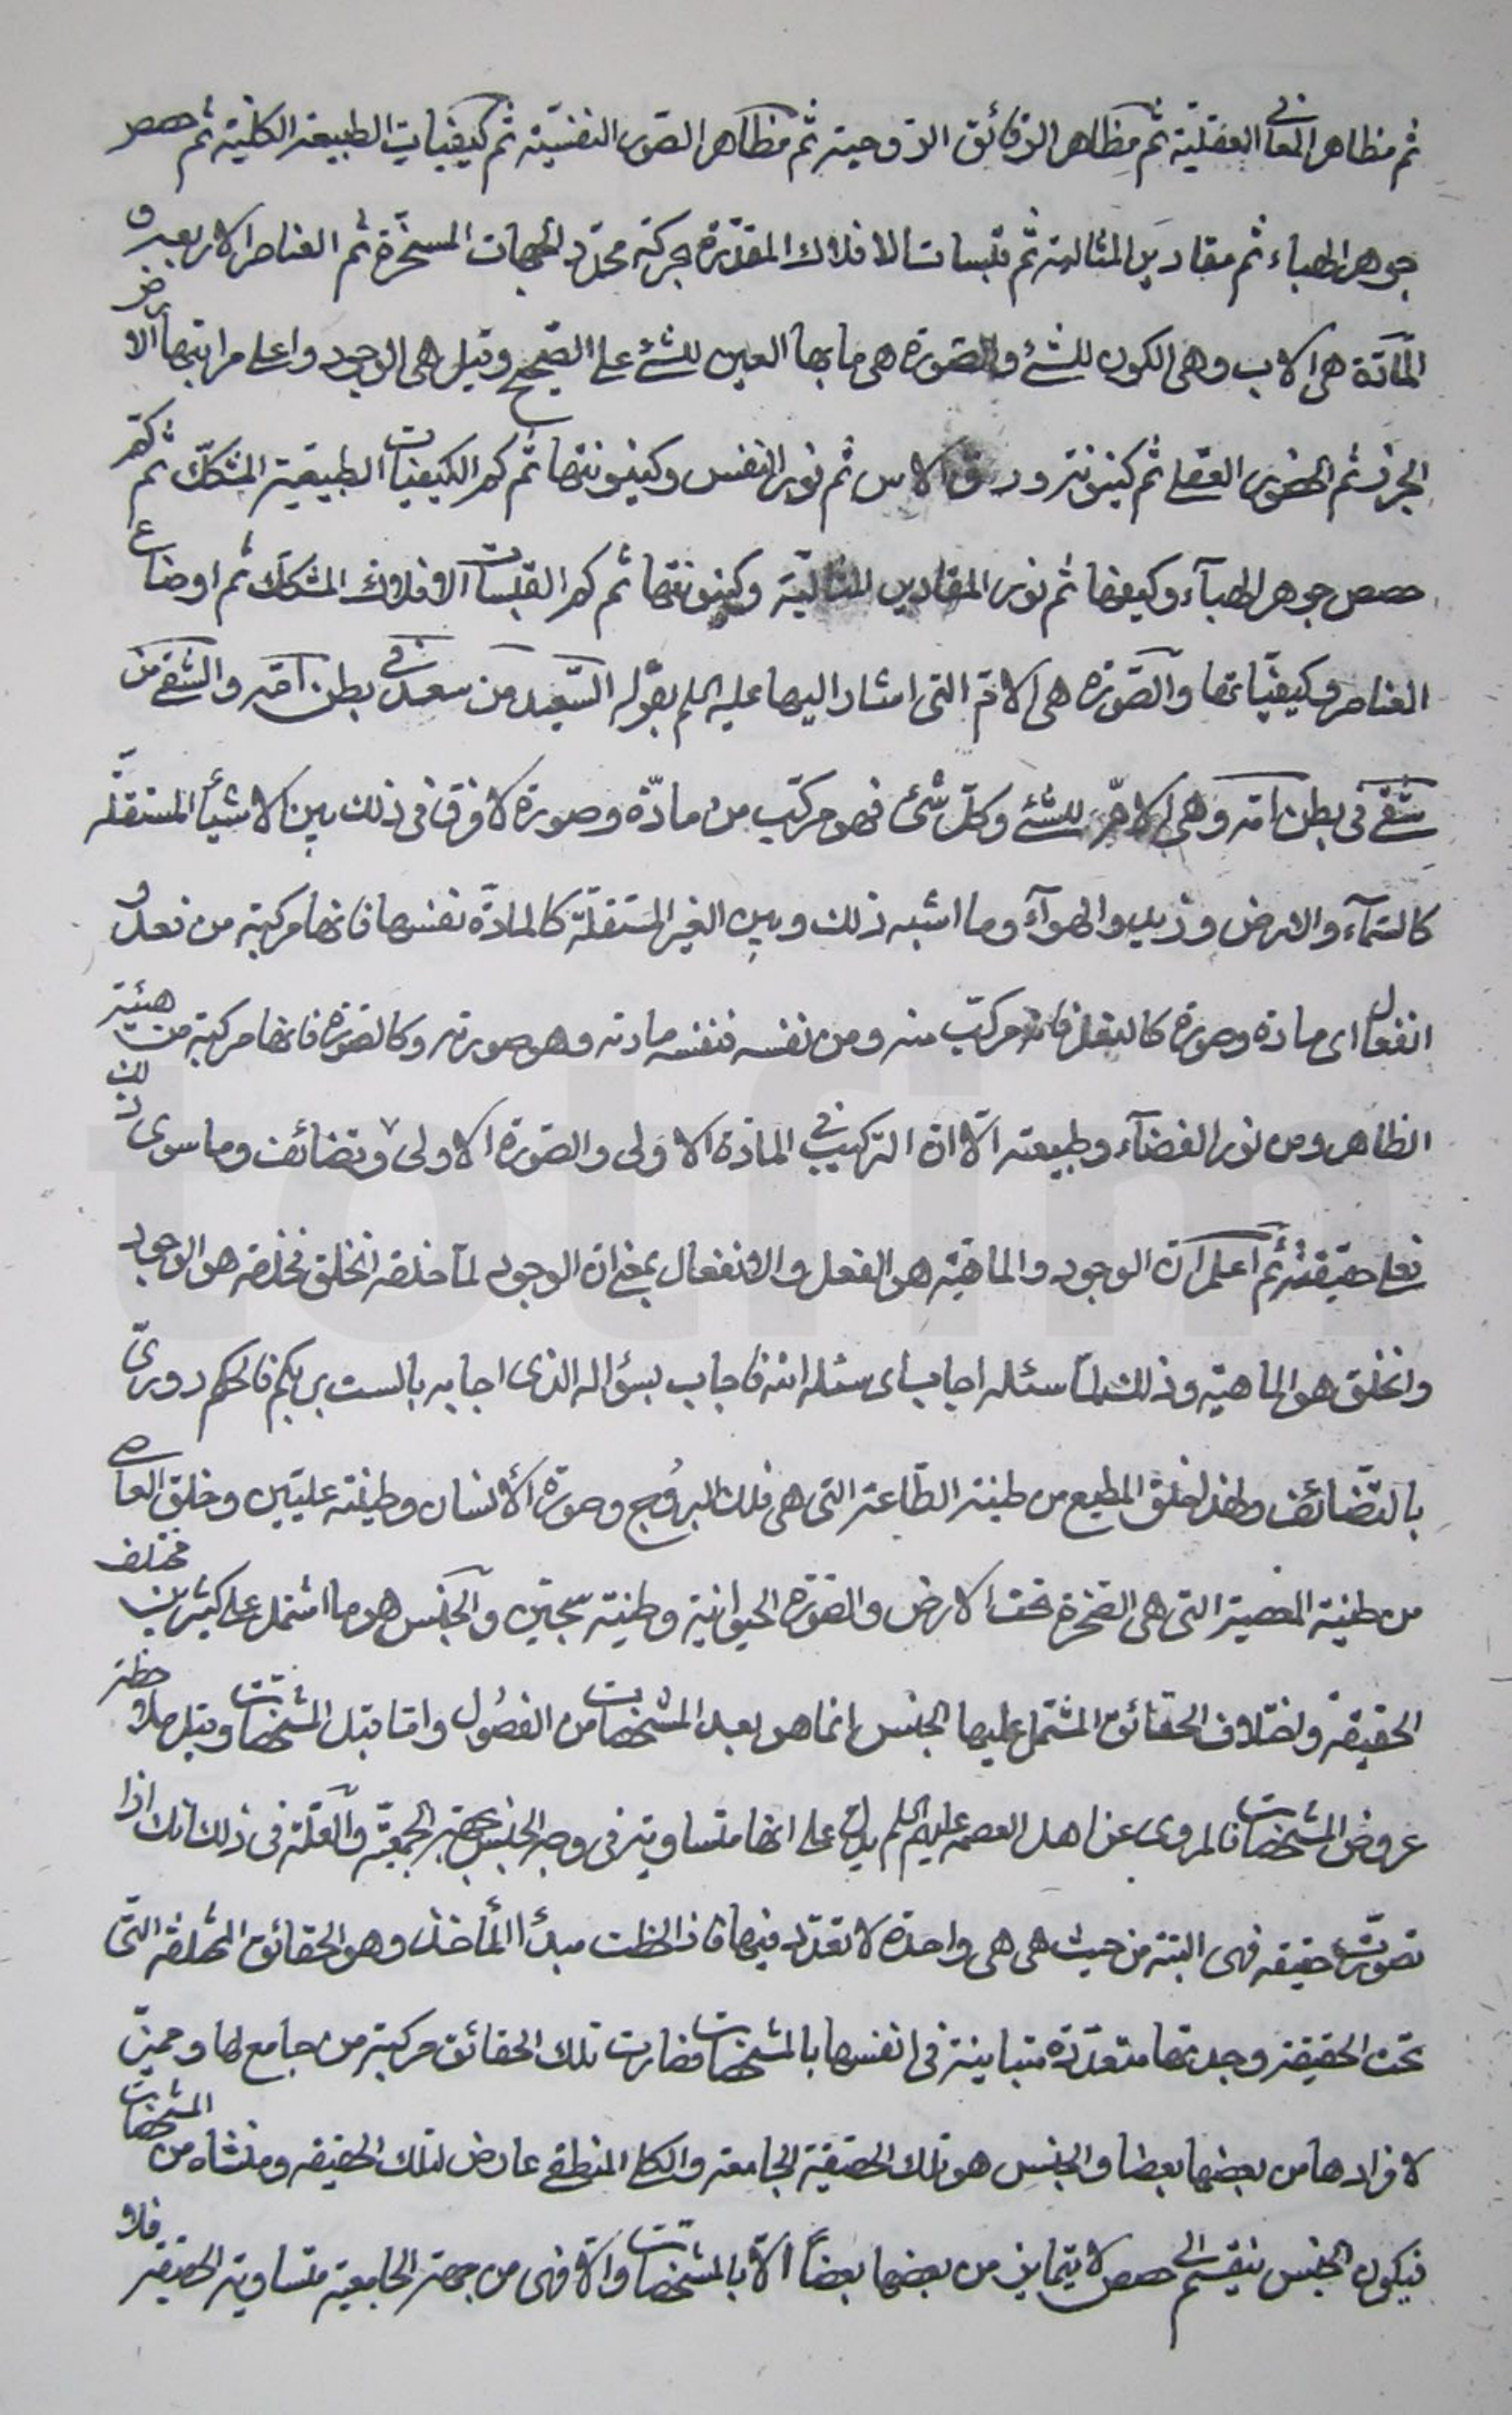 ثم مظاهر المعاني العقليّة ثم مظاهر الرقائق الروحية ثم مظاهر الصّور النفسيّة ثم كيفيات الطبيعة الكليّة ثم حصص
جوهر الهباء ثم مقادير المثالية ثم قبسات الافلاك المقدّرة بحركة محدّد الجهات المسخّرة ثم العناصر الاربعة و
المآدّة هى الاب وهى الكون للشئ والصّورة هى ما بها العين للشئ على الصّحيح وقيل هى الوجود واعلى مراتبها الارض
الجرز ثم الضوء العقلى ثم كينونته وورق الاس ثم نور النفس وكينونتها ثم كم الكيفيات الطبيعية المشكّك ثم كم
حصص جوهر الهبآء وكيفها ثم نور المقادير المثاليّة وكينونتها ثم كم القبسات الافلاك المشكّك ثم اوضاع
العناصر وكيفيّاتها والصّورة هى الامّ التى اشار اليها عليه السلم بقوله السّعيد من سعد في بطن امّه والشقى من
شقى فى بطن امّه وهى الامّ للشئ وكلّ شئ فهو مركّب من مادّة وصورة لا فرق فى ذلك بين الاشيآء المستقلّه
كالسّمآء والارض وزيد والهوآء وما اشبه ذلك وبين الغير المستقلّة كالمادّة نفسها فانها مركبة من فعل و
انفعال اى مادة وصورة كالفعل فانه مركّب منه ومن نفسه فنفسه مادته وهو صورته وكالصّورة فانها مركبة من هيئة
الظاهر ومن نور الفضآء وطبيعته الا ان التركيب في المادّة الاولى والصّورة الاولى وتضائف وما سوى ذلك
فعلى حقيقته ثم اعلم ان الوجود والماهيّة هو الفعل والانفعال بمعنى ان الوجود لمآ خلقه انخلق فخلقه هو الوجود
وانخلق هو الماهية وذلك لمّا سئله اجاب اى سئله انه فاجاب بسؤاله الذى اجابه بالست بربكم فالحكم دورىّ
بالتّضائف ولهذا خلق المطيع من طينة الطّاعة التى هى فلك البروج وصورة الأنسان وطينة عليّين وخلق العاصى
من طينة المعصية التى هى الصّخرة تحت الارض والصّورة الحيوانية وطينة سجّين والجنس هو ما اشتمل على كثيرين مختلف
الحقيقة واختلاف الحقائق المشتمل عليها الجنس انما هو بعد المشخصات من الفصُول وامّا قبل المشخصات وقبل ملاحظة
عروض المشخصات فالمروى عن اهل العصمه عليهم السلم يدل على انها متساوية فى وجه الجنس جهة الجمعيّة والعلّة فى ذلك انك اذا
تصوّرت حقيقه فهى البتة من حيث هى هى واحدة لا تعدّد فيها فاذا لاحظت مبدأ المأخذ وهو الحقائق المختلفه التى
تحت الحقيقة وجدتها متعدّدة متباينة فى انفسها بالمشخصات فصارت تلك الحقائق مركبة من جامع لها ومميّز
لافرادها من بعضها بعضا والجنس هو تلك الحقيقة الجامعة والكلى المنطقى عارض لتلك الحقيقه ومنشاه من المشخصات
فيكون الجنس ينقسم الى حصص لا يتمايز من بعضها بعضاً الّا بالمشخصات والّا فهى من جهة الجامعية متساوية الحقيقة فلا